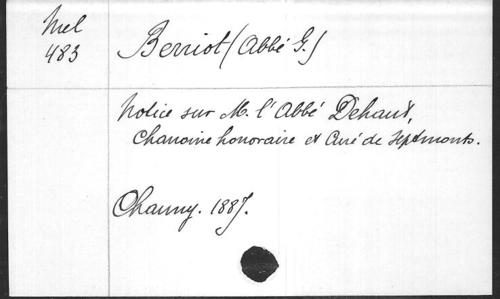 Mel
483
Berriot (Abbé G.)
Notice sur M. l'Abbé Dehaut,
Chanoine honoraire et Curé de Septmonts.
Chauny. 1887.